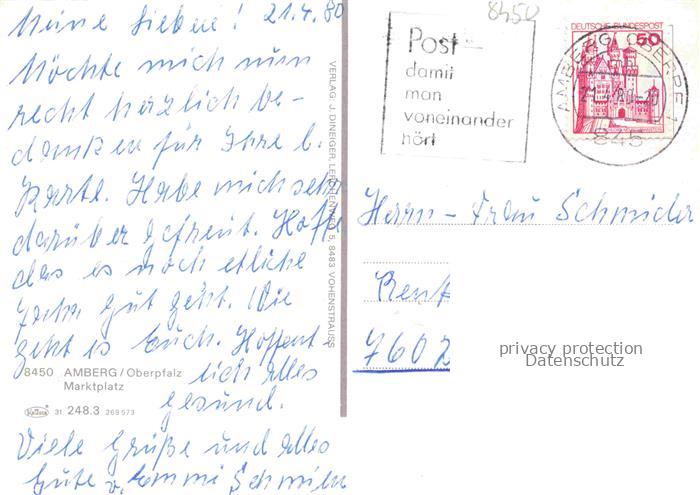 Meine Lieben! 21.4.80
Möchte mich nun
recht herzlich be-
danken für Ihre l.
Karte. Habe mich sehr
darüber gefreut. Hoffe
das es noch etliche
Jahre gut geht. Wie
geht es Euch. Hoffent-
lich alles
gesund.
Viele Grüße und alles
Gute v. Emmi Schmi
8450 AMBERG / Oberpfalz
Marktplatz
31. 248.3 269573
VERLAG J. DINEIGER, LERCHENWEG 5, 8483 VOHENSTRAUSS
8450
Post –
damit
man
voneinander
hört
DEUTSCHE BUNDESPOST
50
AMBERG, OBERPF 1
845
Herrn - Frau Schmider
Rent
7602
privacy protection
Datenschutz